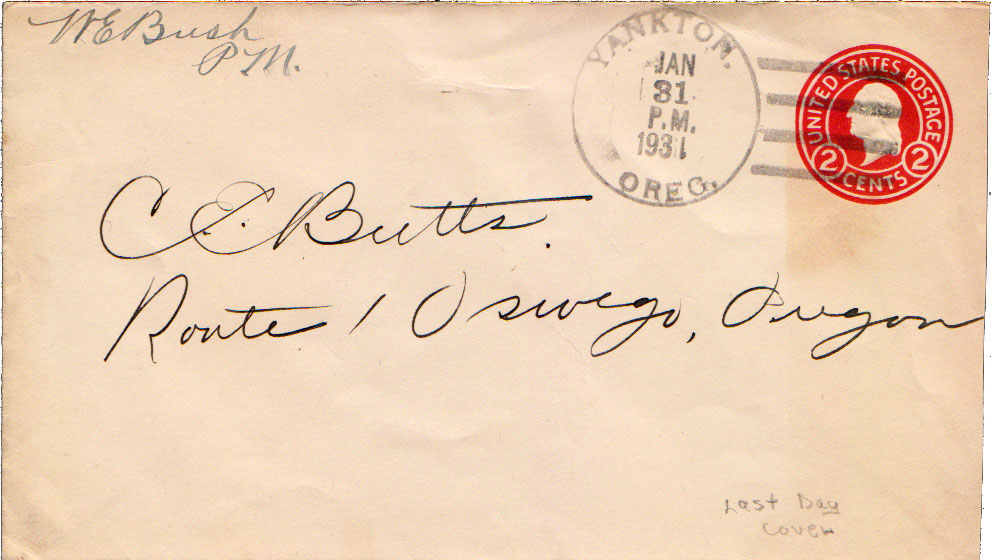 W E Bush
P.M.
YANKTON,
JAN
31
P.M.
1931
OREG.
UNITED STATES POSTAGE
2 CENTS 2
C. E. Butts.
Route 1 Oswego, Oregon
Last Day
Cover